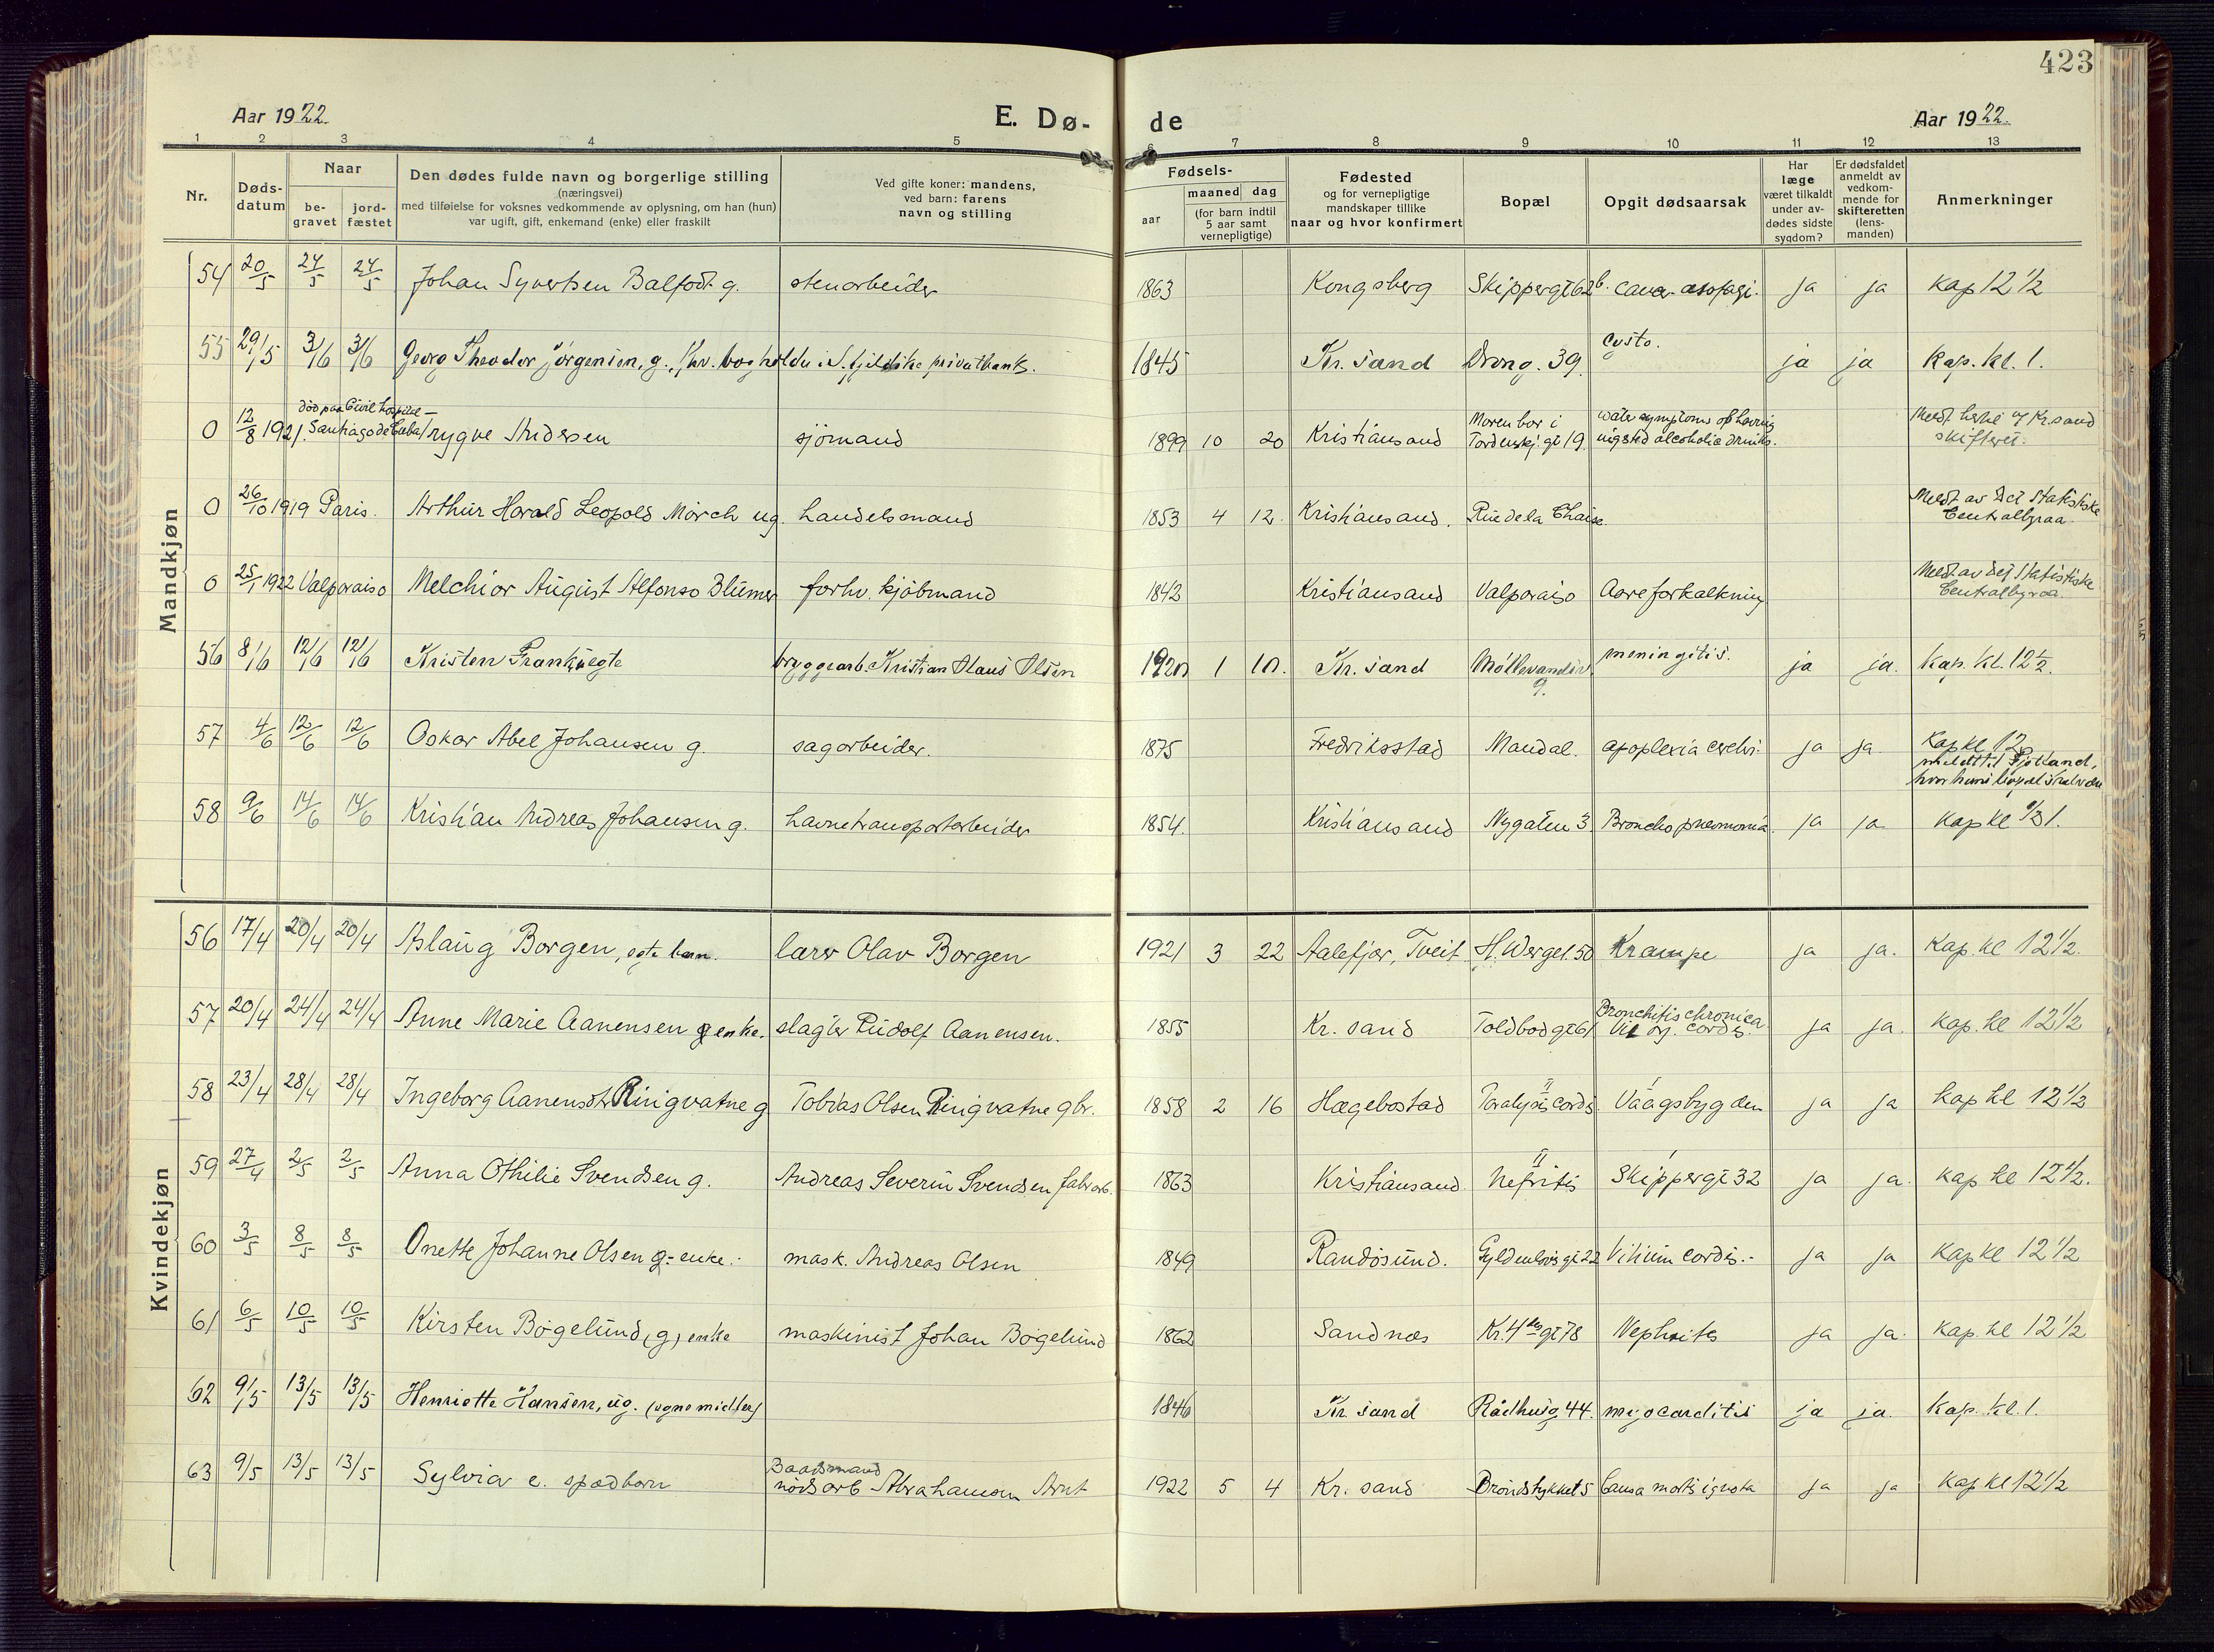 423
Aar 1922. E. Dø- de Aar 1922.
1 2 3 4 5 6 7 8 9 10 11 12 13
Nr. Døds-datum Naar be-gravet jord-fæstet Den dødes fulde navn og borgerlige stilling (næringsvei) med tilføielse for voksnes vedkommende av oplysning, om han (hun) var ugift, gift, enkemand (enke) eller fraskilt Ved gifte koner: mandens, ved barn: farens navn og stilling Fødsels- aar maaned dag (for barn indtil 5 aar samt vernepligtige) Fødested og for vernepligtige mandskaper tillike naar og hvor konfirmert Bopæl Opgit dødsaarsak Har læge været tilkaldt under av-dødes sidste sygdom? Er dødsfaldet anmeldt av vedkom-mende for skifteretten (lens-manden) Anmerkninger
Mandkjøn
54 20/5 24/5 24/5 Johan Syvertsen Balfodt g. stenarbeider 1863 Kongsberg Skippergt 62b. ja ja Kap 12 1/2
55 29/5 3/6 3/6 Georg Theodor Jörgensen, g., fhv. bogholder i privatbank. 1845 Kr. sand Drong. 39. Cysto. ja ja Kap. kl. 1.
0 12/8 1921. död paa Civil hospital - Santiago de Cuba Trygve Andersen sjömand 1899 10 20 Kristiansand Moren bor i Tordenskj. gt 19. symptoms of having alcoholic drinks. Meldt Kr.sand skifteret.
0 26/10 1919 Paris. Arthur Harald Leopold Mörch ug. handelsmand 1853 4 12. Kristiansand. Rue de la Chaise. Meldt av Det Statistiske Centralbyraa.
0 25/1 1922 Valparaiso Melchior August Alfonso Blumer forhv. kjöbmand 1842 Kristiansand Valparaiso Aareforkalkning Meldt av det Statistiske Centralbyraa.
56 8/6 12/6 12/6 Kristen Frank, ægte bryggearb. Kristian Olaus Olsen 1920 1 10. Kr. sand Möllevandsv. 9. meningitis. ja ja. Kap. kl. 12 1/2.
57 4/6 12/6 12/6 Oskar Abel Johansen g. sagarbeider. 1875 Fredriksstad Mandal. apoplexia cerebri. ja ja. Kap kl 12.
58 9/6 14/6 14/6 Kristian Andreas Johansen g. havnetransportarbeider 1854. Kristiansand Nygaten 3 Bronchopneumonia. ja ja. Kap kl 1/2 1.
Kvindekjøn
56 17/4 20/4 20/4 Aslaug Borgen, egte barn. lærer Olav Borgen 1921 3 22 Aalefjær, Tveit H. Wergel. 50 Krampe ja ja. Kap. kl 12 1/2.
57 20/4 24/4 24/4 Anne Marie Aanensen g enke. slagter Rudolf Aanensen. 1855 Kr. sand Toldbodgt 61 Bronchitis chronica Vit. org. cordis. ja ja. kap. kl 12 1/2
58 23/4 28/4 28/4 Ingeborg Aanensdtr Ringvatne g Tobias Olsen Ringvatne gbr. 1858 2 16 Hægebostad Paralysis cordis II Vaagsbygden I ja ja kap kl 12 1/2
59 27/4 2/5 2/5 Anna Othilie Svendsen g. Andreas Severin Svendsen fabr.arb. 1863 Kristiansand Nefritis II Skippergt 32 I ja ja. kap kl 12 1/2.
60 3/5 8/5 8/5 Onette Johanne Olsen g- enke.- mask. Andreas Olsen 1849 Randösund. Gyldenlövsgt 22 Vitium cordis.- ja ja kap kl 12 1/2
61 6/5 10/5 10/5 Kirsten Bögelund, (g) enke maskinist Johan Bögelund 1862 Sandnes Kr. 4des gt 78 Nephritis ja ja. kap. kl 12 1/2
62 9/5 13/5 13/5 Henriette Hansen, ug. (egne midler) 1846 Kr sand Rådhusg. 44. myocarditis ja ja. Kap. kl. 1.
63 9/5 13/5 13/5 Sylvia e. spædbarn Baadsmand nödsarb Abrahamsen Arnt 1922 5 4 Kr. sand Bröndstykket 5 Causa mortis ignota ja ja kap kl 12 1/2